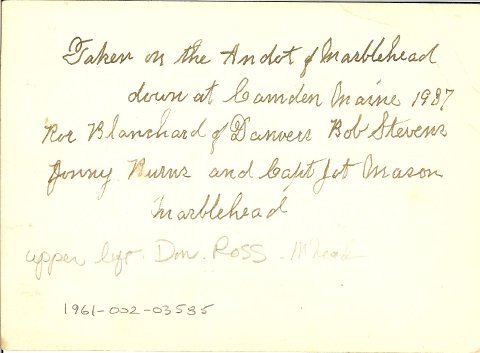 Taken on the Andot of Marblehead
down at Camden Maine 1937
Roe Blanchard of Danvers Bob Stevens
Jonny Burns and Capt Jot Mason
Marblehead
upper left. Don. Ross. M'head
1961-002-03585